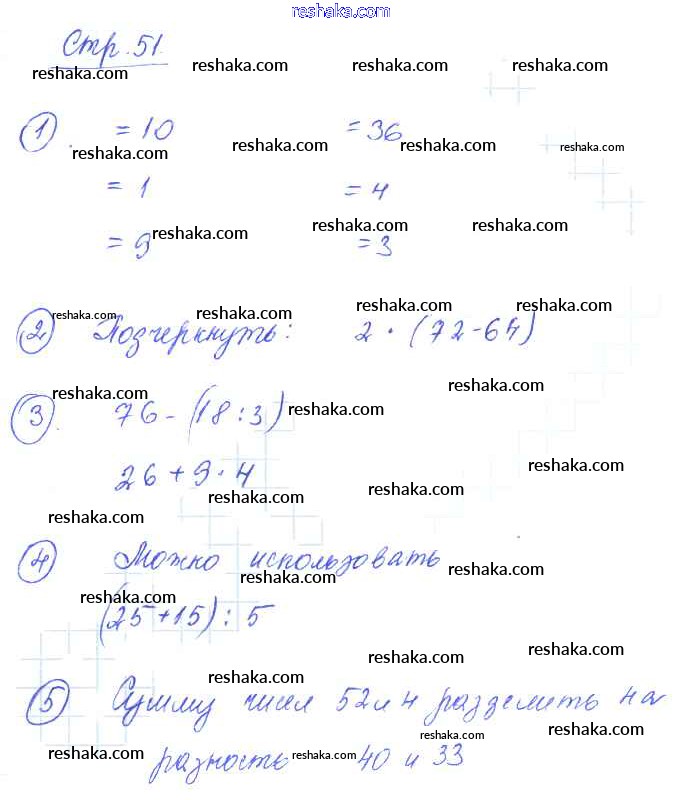 reshaka.com
Стр. 51.
reshaka.com reshaka.com reshaka.com reshaka.com
1 = 10 = 36
reshaka.com reshaka.com reshaka.com reshaka.com
= 1 = 4
reshaka.com reshaka.com reshaka.com
= 9 = 3
reshaka.com reshaka.com reshaka.com reshaka.com
2 Подчеркнуть: 2 · (72-64)
reshaka.com reshaka.com
3. 76 - (18 : 3) reshaka.com
26 + 9 · 4 reshaka.com
reshaka.com reshaka.com reshaka.com
4 Можно использовать
reshaka.com reshaka.com
reshaka.com
(25+15) : 5
reshaka.com reshaka.com
5 Сумму чисел 52 и 4 разделить на
reshaka.com reshaka.com
разность 40 и 33
reshaka.com reshaka.com reshaka.com reshaka.com